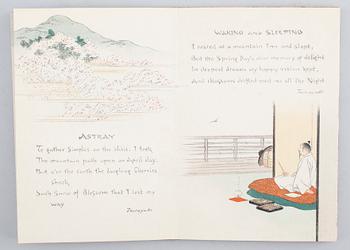 ASTRAY
To gather Simples on the Hills I took
The mountain path upon an April day.
But o'er the earth the laughing Cherries
shook,
Such Snow of Blossom that I lost my
way.
Tsurayuki
WAKING AND SLEEPING
I rested at a mountain Inn and slept,
But the Spring Day's dear memory of delight
In deepest dreams my happy vision kept,
And Blossoms drifted round me all the Night
Tsurayuki